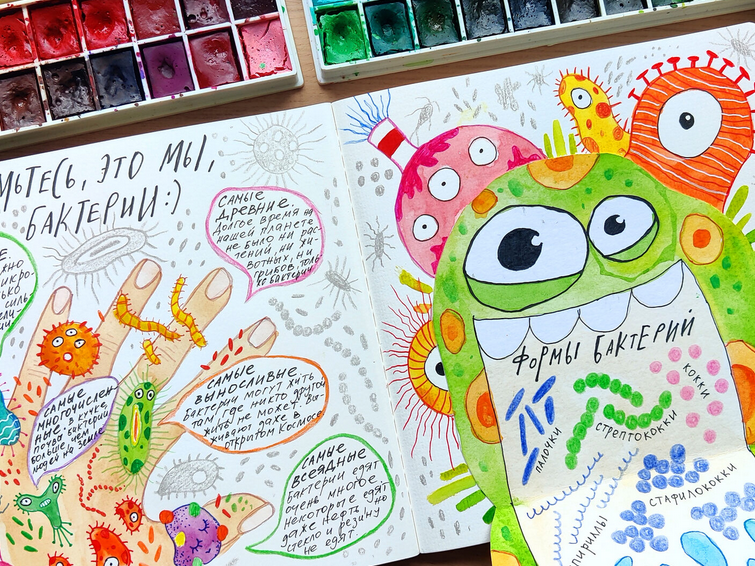 МЬТЕСЬ, ЭТО МЫ,
БАКТЕРИИ:)
САМЫЕ
ДРЕВНИЕ.
Долгое время на
нашей планете
не было ни рас-
тений, ни жи-
вотных, ни
грибов, толь-
ко бактерии
САМЫЕ
МНОГОЧИСЛЕН-
НЫЕ. В кучке
почвы бактерий
больше, чем
людей на Земле
САМЫЕ
ВЫНОСЛИВЫЕ.
Бактерии могут жить
там, где никто другой
жить не может. Вы-
живают даже в
открытом Космосе.
САМЫЕ
ВСЕЯДНЫЕ
Бактерии едят
очень многое.
Некоторые едят
даже нефть, но
стекло и резину
не едят.
ФОРМЫ БАКТЕРИЙ
ПАЛОЧКИ
СТРЕПТОКОККИ
КОККИ
СТАФИЛОКОККИ
ПИРИЛЛЫ